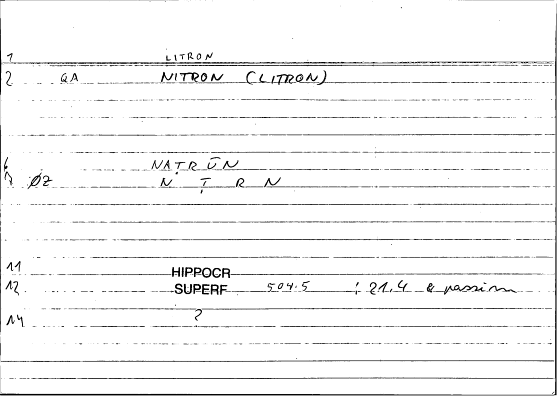 1 LITRON
2 GA NITRON (LITRON)
6 NAṬRŪN
7 ØZ N Ṭ R N
11 HIPPOCR
12 SUPERF 504.5 : 21.4 & passim
14 ?